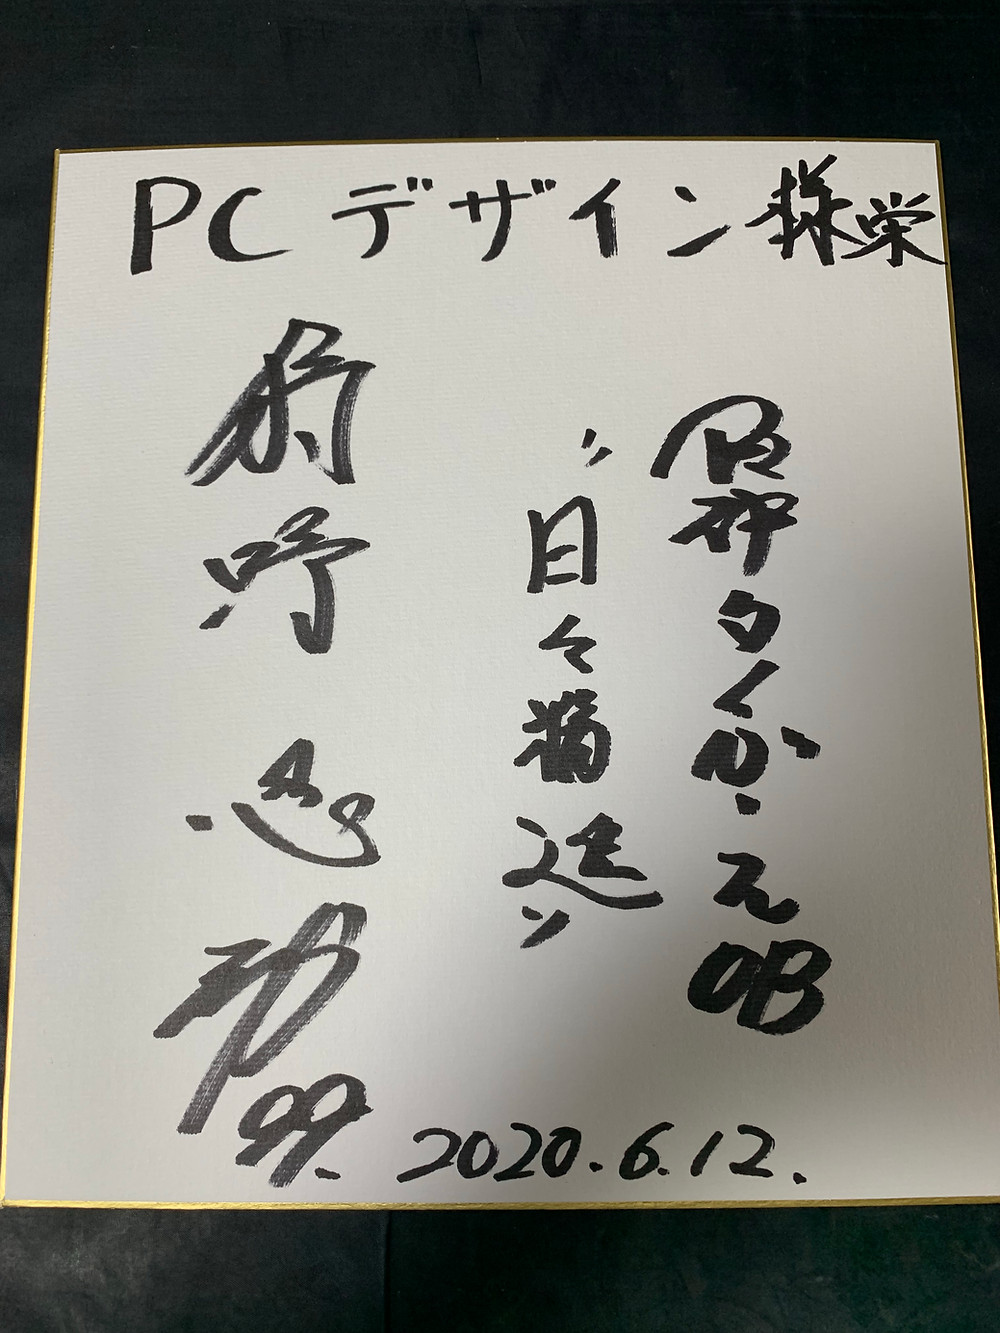 PC デザイン様栄
阪神タイガースOB
〝日々精進〟
99.
2020.6.12.